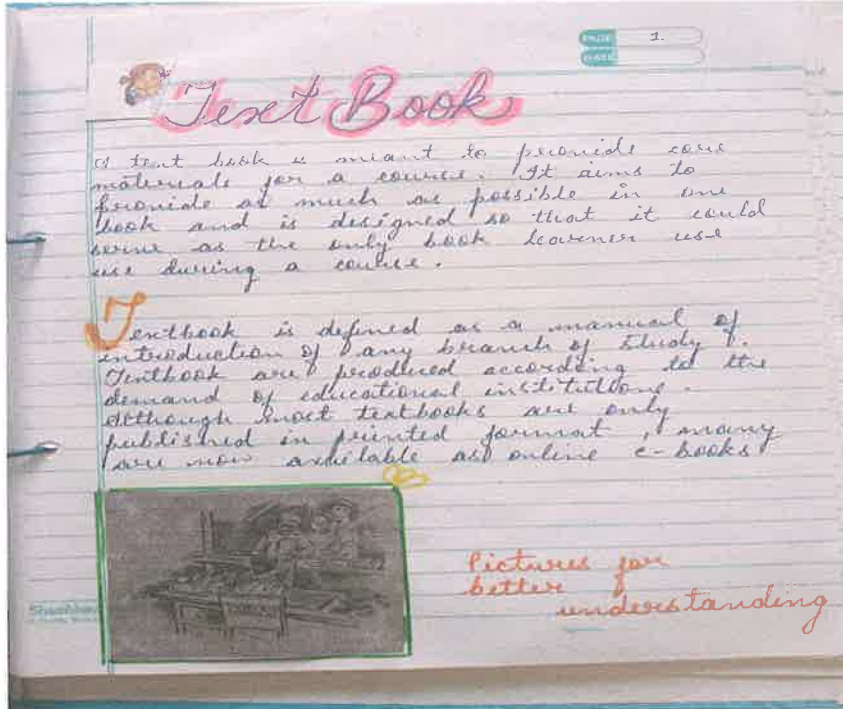 PAGE 1.
DATE
Text Book
A text book is meant to provide core
materials for a course. It aims to
provide as much as possible in one
book and is designed so that it could
serve as the only book learner use
use during a course.
Textbook is defined as a manual of
introduction of any branch of study.
Textbook are produced according to the
demand of educational institutions.
Although most textbooks are only
published in printed format, many
are now available as online e-books
Pictures for
better
understanding